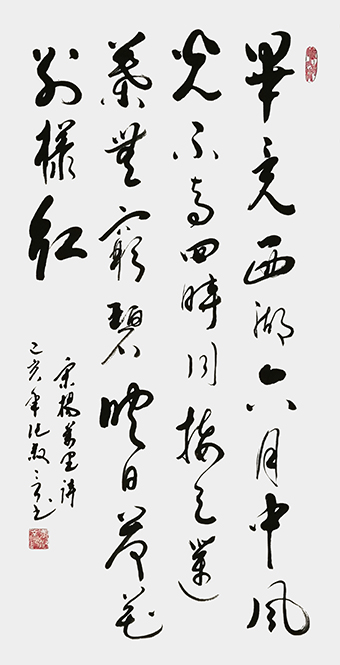 畢竟西湖六月中風
光不与四時同接天蓮
葉無窮碧映日荷花
別樣紅
宋楊萬里詩
己亥年